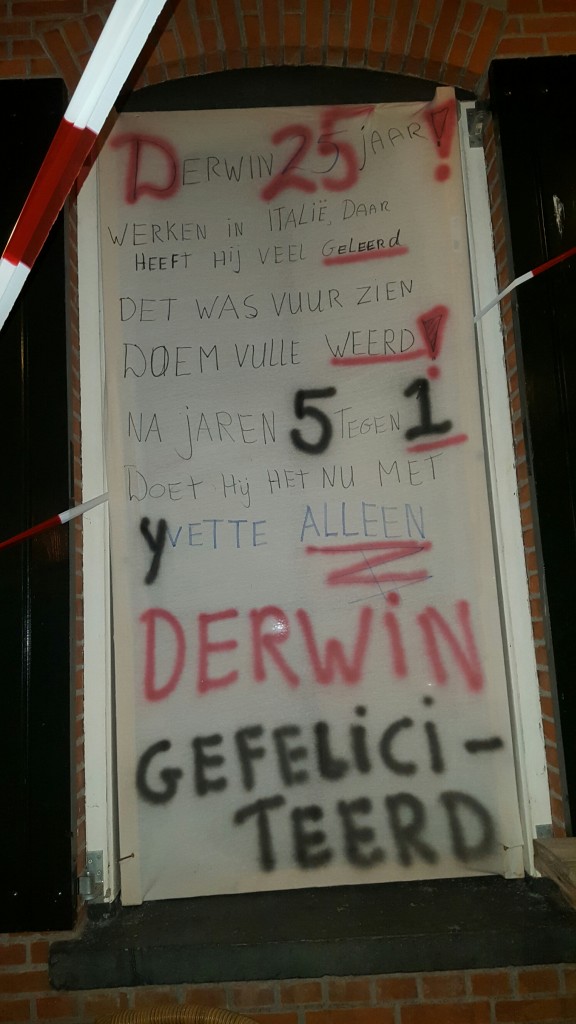 DERWIN 25 JAAR!
WERKEN iN ITALIË, DAAR
HEEFT HIJ VEEL GELEERd
DET WAS VUUR ZIEN
DOEM VULLE WEERD!
NA JAREN 5 TEGEN 1
DOET Hij HET NU MET
YVETTE ALLEEN
DERWiN
GEFELiCi-
TEERD